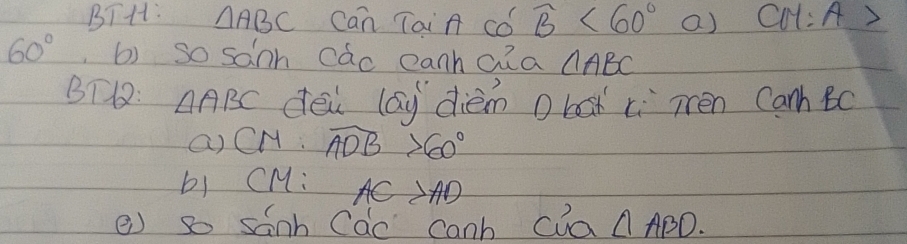 BT11: △ABC cân Tại A có B̂ < 60° a) CM: A >
60°. b) so sánh các cạnh của △ABC
BT12: △ABC đều lấy điểm D bất kì trên cạnh BC
a) CM: ADB > 60°
b) CM: AC > AD
c) so sánh các cạnh của △ ABD.